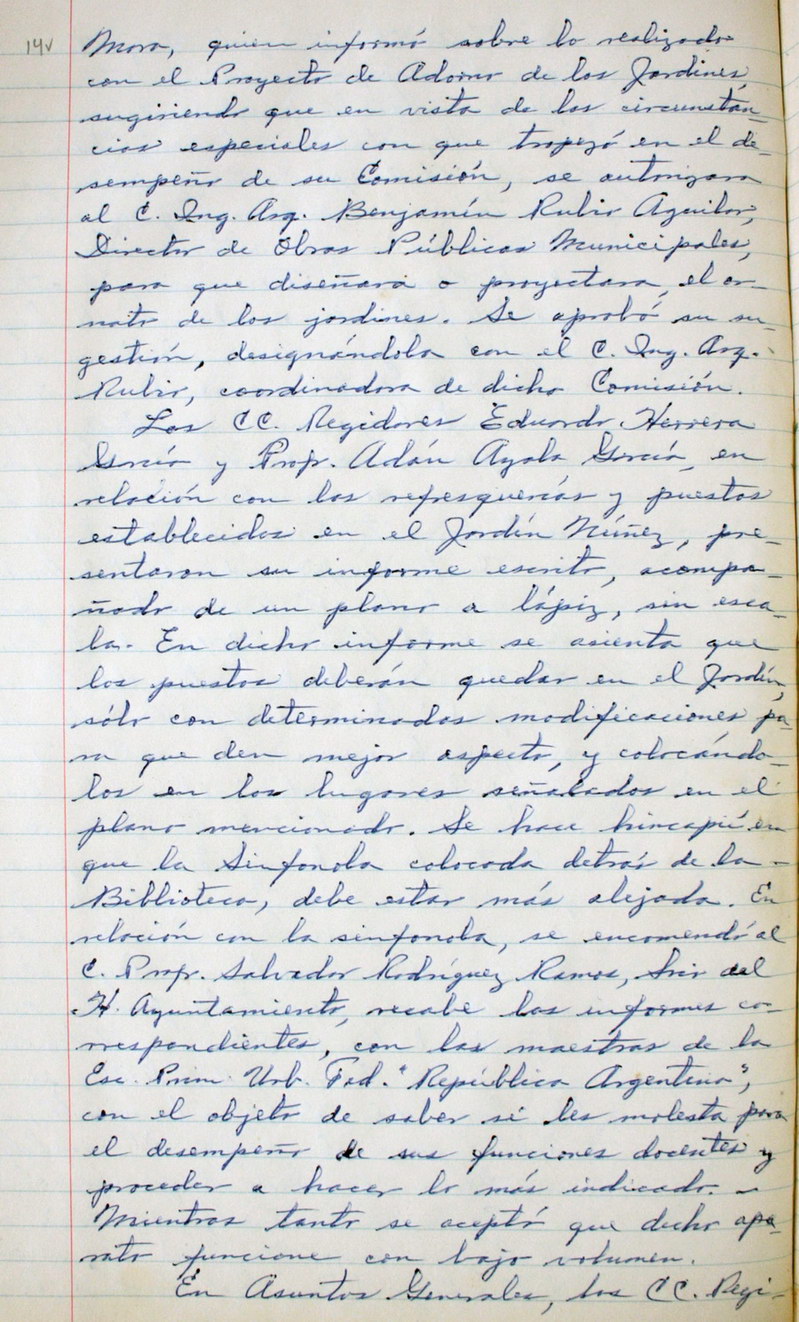 14v
Mora, quien informó sobre lo realizado
con el Proyecto de Adorno de los Jardines,
sugiriendo que en vista de las circunstan-
cias especiales con que tropezó en el de-
sempeño de su Comisión, se autorizara
al C. Ing. Arq. Benjamín Rubio Aguilar,
Director de Obras Públicas Municipales,
para que diseñara o proyectara, el or-
nato de los jardines. Se aprobó su su-
gestión, designándola con el C. Ing. Arq.
Rubio, coordinadora de dicha Comisión.
Los CC. Regidores Eduardo Herrera
García y Profr. Adán Ayala García, en
relación con las refresquerías y puestos
establecidos en el Jardín Núñez, pre-
sentaron su informe escrito, acompa-
ñado de un plano a lápiz, sin esca-
la. En dicho informe se asienta que
los puestos deberán quedar en el Jardín,
sólo con determinadas modificaciones pa-
ra que den mejor aspecto, y colocándo-
los en los lugares señalados en el
plano mencionado. Se hace hincapié en
que la Sinfonola colocada detrás de la -
Biblioteca, debe estar más alejada. En
relación con la sinfonola, se encomendó al
C. Profr. Salvador Rodríguez Ramos, Srio del
H. Ayuntamiento, recabe los informes co-
rrespondientes, con las maestras de la
Esc. Prim. Urb. Fed. "República Argentina",
con el objeto de saber si les molesta para
el desempeño de sus funciones docentes y
proceder a hacer lo más indicado. -
Mientras tanto se aceptó que dicho apa-
rato funcione con bajo volumen.
En Asuntos Generales, los CC. Regi-